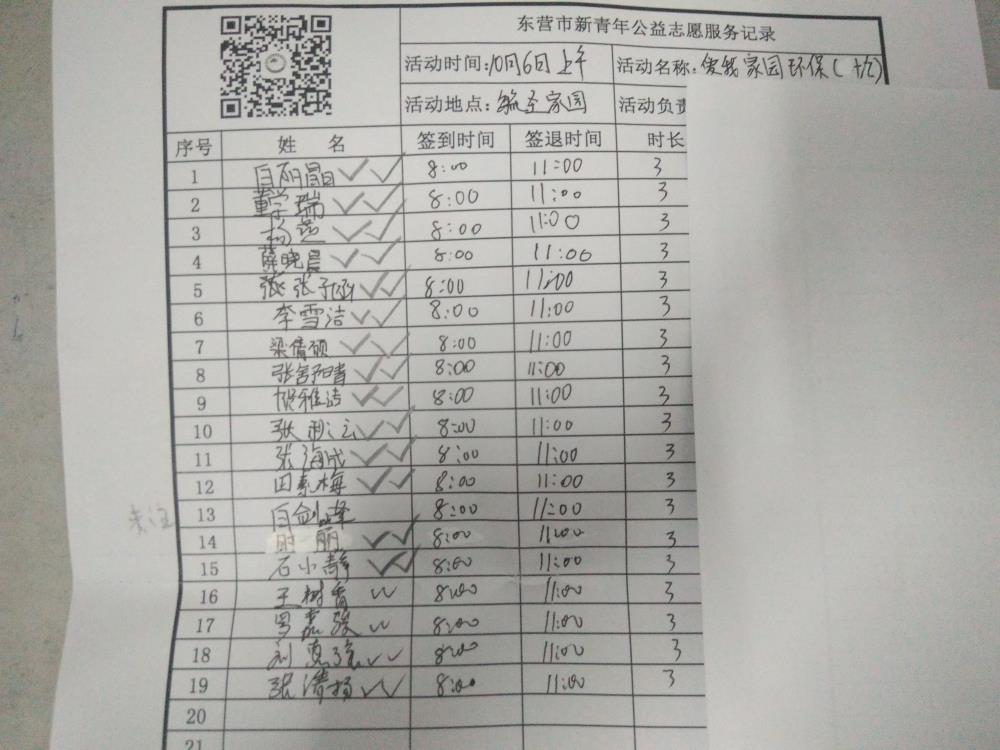 东营市新青年公益志愿服务记录
活动时间:10月6日上午 活动名称:爱我家园环保(
活动地点:毓圣家园 活动负责
序号 姓 名 签到时间 签退时间 时长
1 白丽晶 8:00 11:00 3
2 董学瑞 8:00 11:00 3
3 杨燕 8:00 11:00 3
4 薛晓晨 8:00 11:00 3
5 张子涵 8:00 11:00 3
6 李雪洁 8:00 11:00 3
7 梁倩硕 8:00 11:00 3
8 8:00 11:00 3
9 雅洁 8:00 11:00 3
10 张彩云 8:00 11:00 3
11 张海成 8:00 11:00 3
12 田素梅 8:00 11:00 3
未注 13 白剑峰 8:00 11:00 3
14 时丽 8:00 11:00 3
15 石小静 8:00 11:00 3
16 王树香 8:00 11:00 3
17 罗嘉骏 8:00 11:00 3
18 刘真 8:00 11:00 3
19 张清杨 8:00 11:00 3
20
21